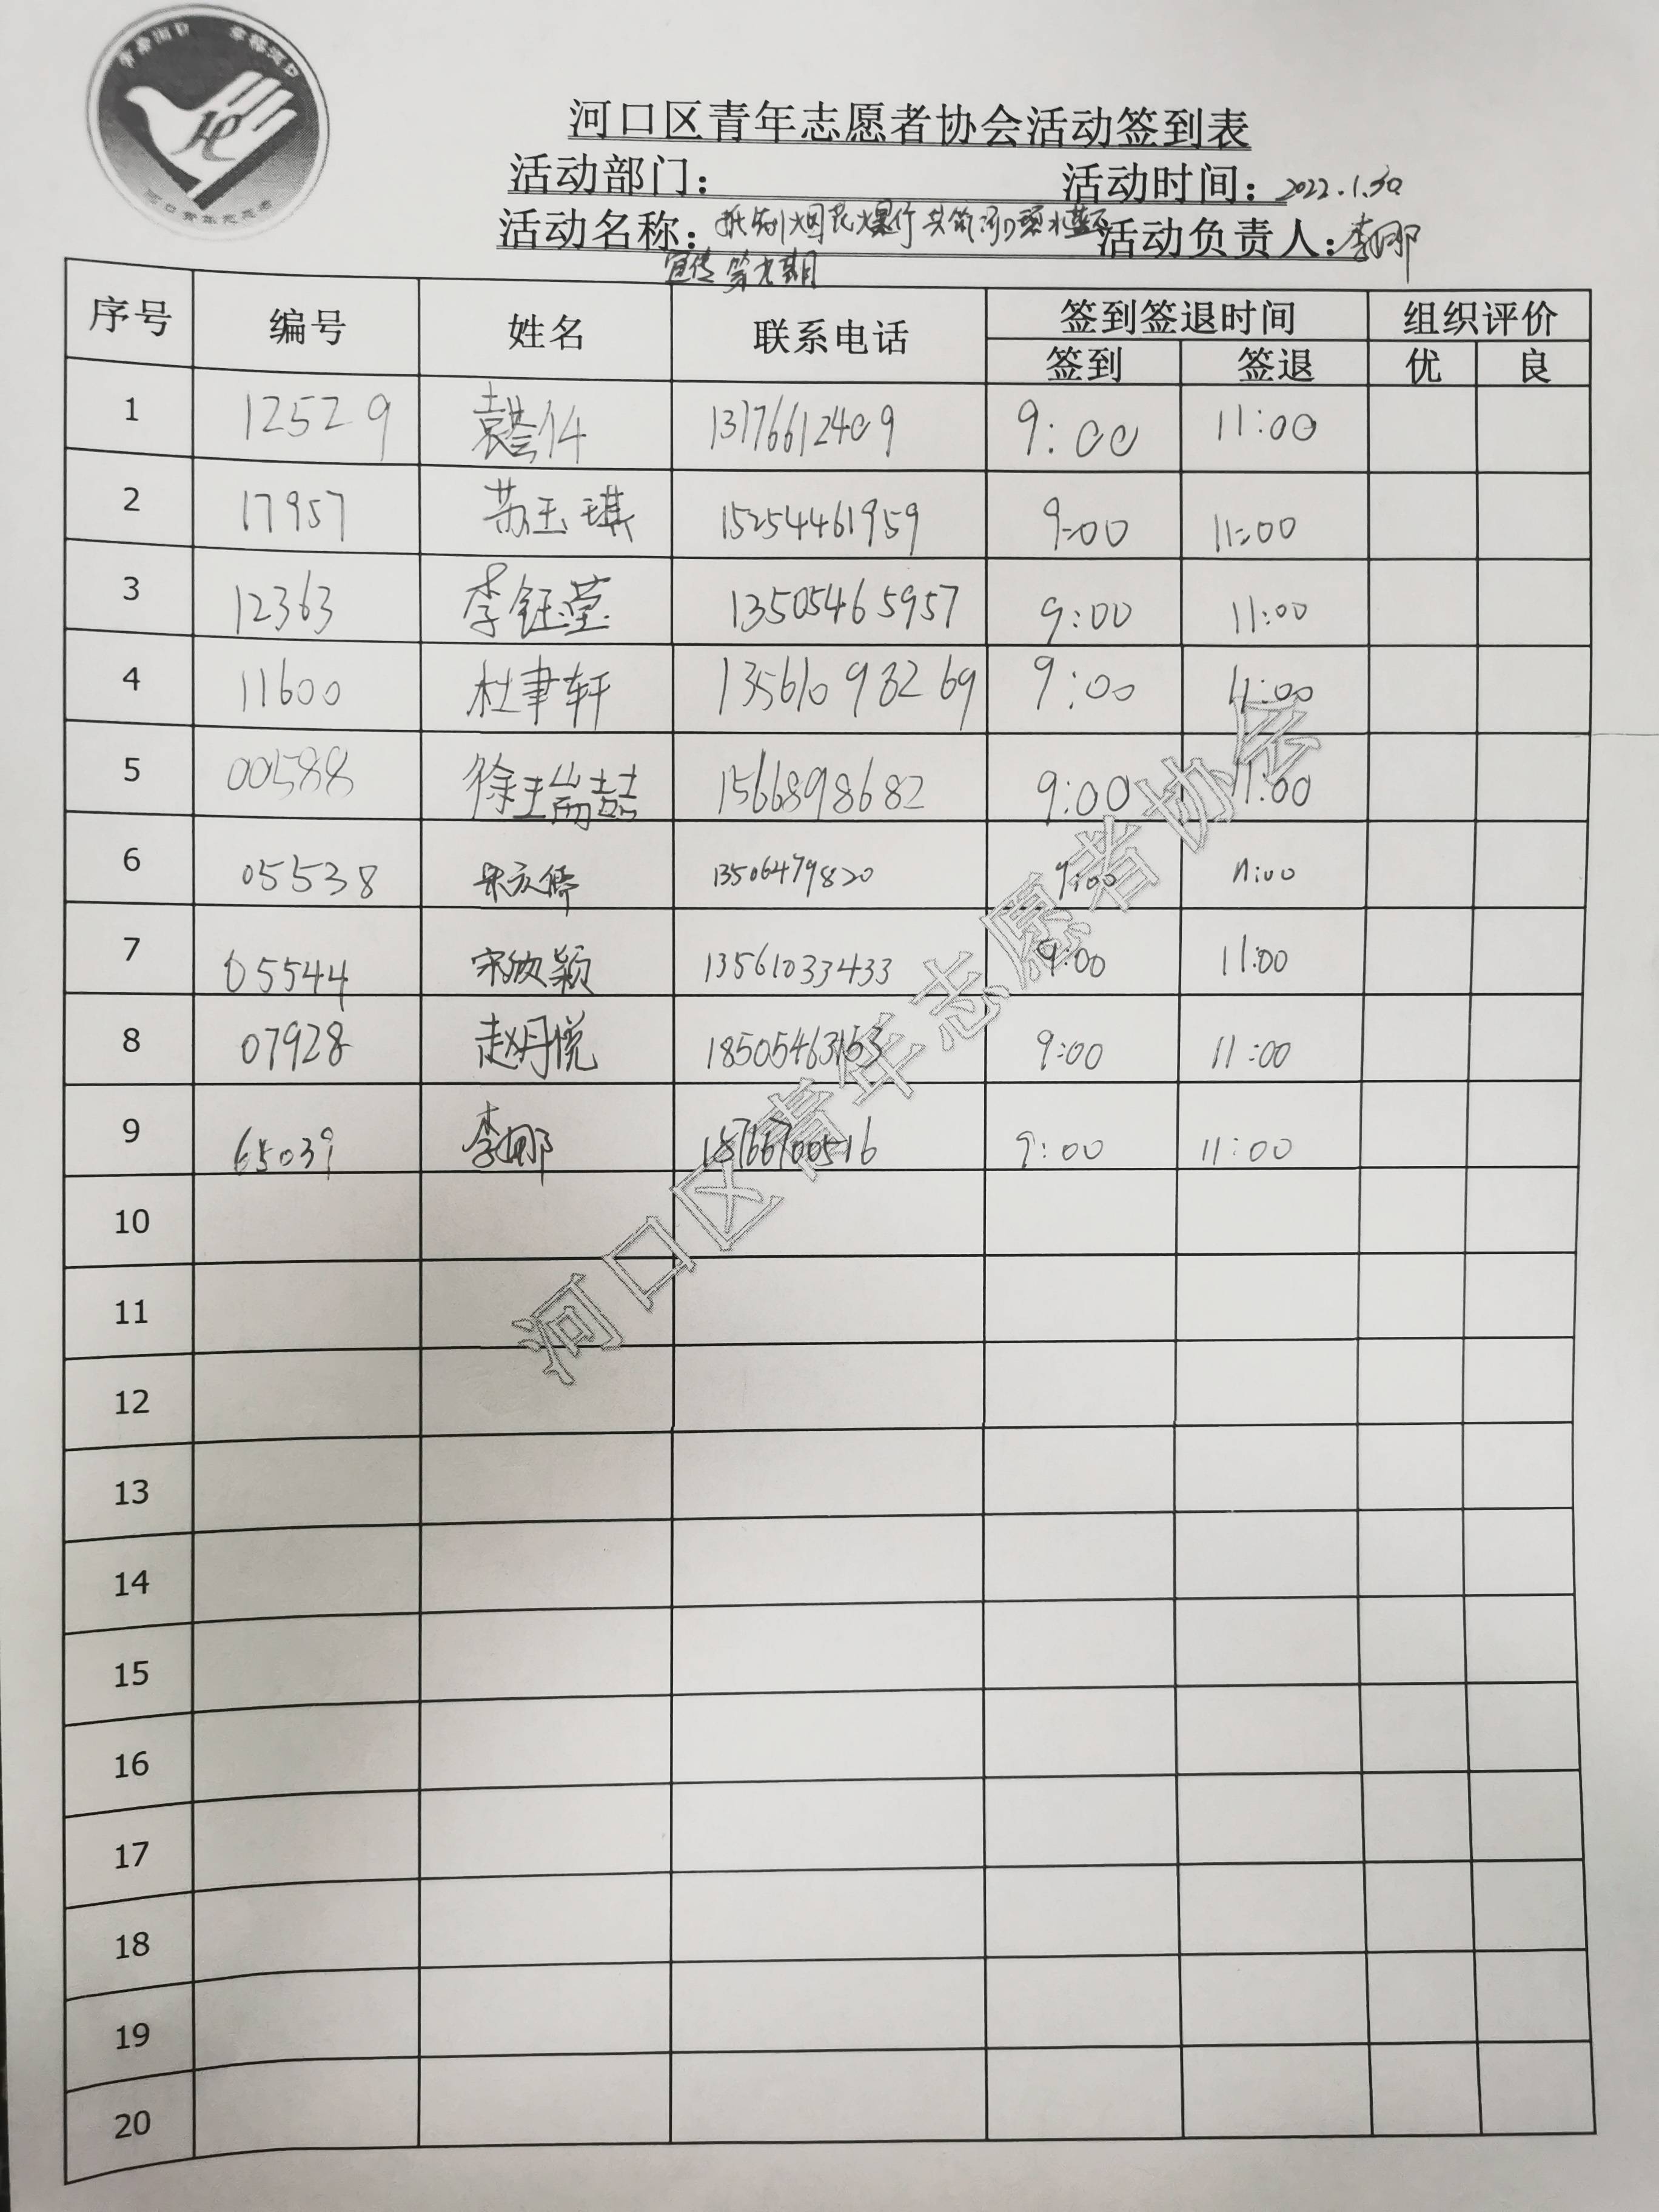 河口区青年志愿者协会活动签到表
活动部门： 活动时间：2022.1.30
活动名称：抵制烟花爆竹 共筑河口碧水蓝天 活动负责人：李娜
宣传 第九期
序号 编号 姓名 联系电话 签到签退时间 组织评价
签到 签退 优 良
1 12529 13176612409 9:00 11:00
2 17957 苏玉琪 15254461959 9:00 11:00
3 12363 李钰莹 13505465957 9:00 11:00
4 11600 杜聿轩 13561093269 9:00 11:00
5 00588 徐瑞喆 1566898682 9:00 11:00
6 05538 13506479820 9:00 11:00
7 05544 宋欣颖 13561033433 9:00 11:00
8 07928 赵月悦 18505463153 9:00 11:00
9 65039 李娜 18766700516 9:00 11:00
10
11
12
13
14
15
16
17
18
19
20
河口区青年志愿者协会